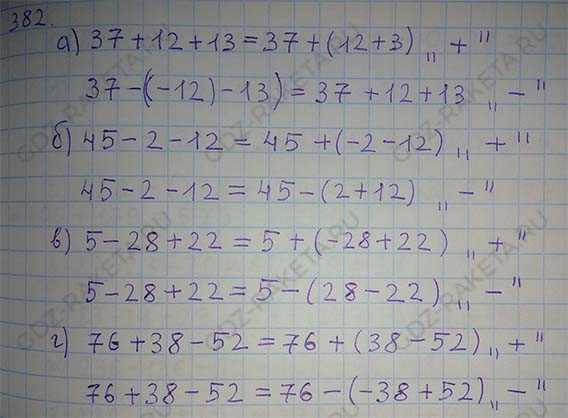 382.
а) 37+12+13=37+(12+3) „+"
37-((-12)-13)=37+12+13 „-"
б) 45-2-12=45+(-2-12) „+"
45-2-12=45-(2+12) „-"
в) 5-28+22=5+(-28+22) „+"
5-28+22=5-(28-22) „-"
г) 76+38-52=76+(38-52) „+"
76+38-52=76-(-38+52) „-"
GDZ-RAKETA.RU